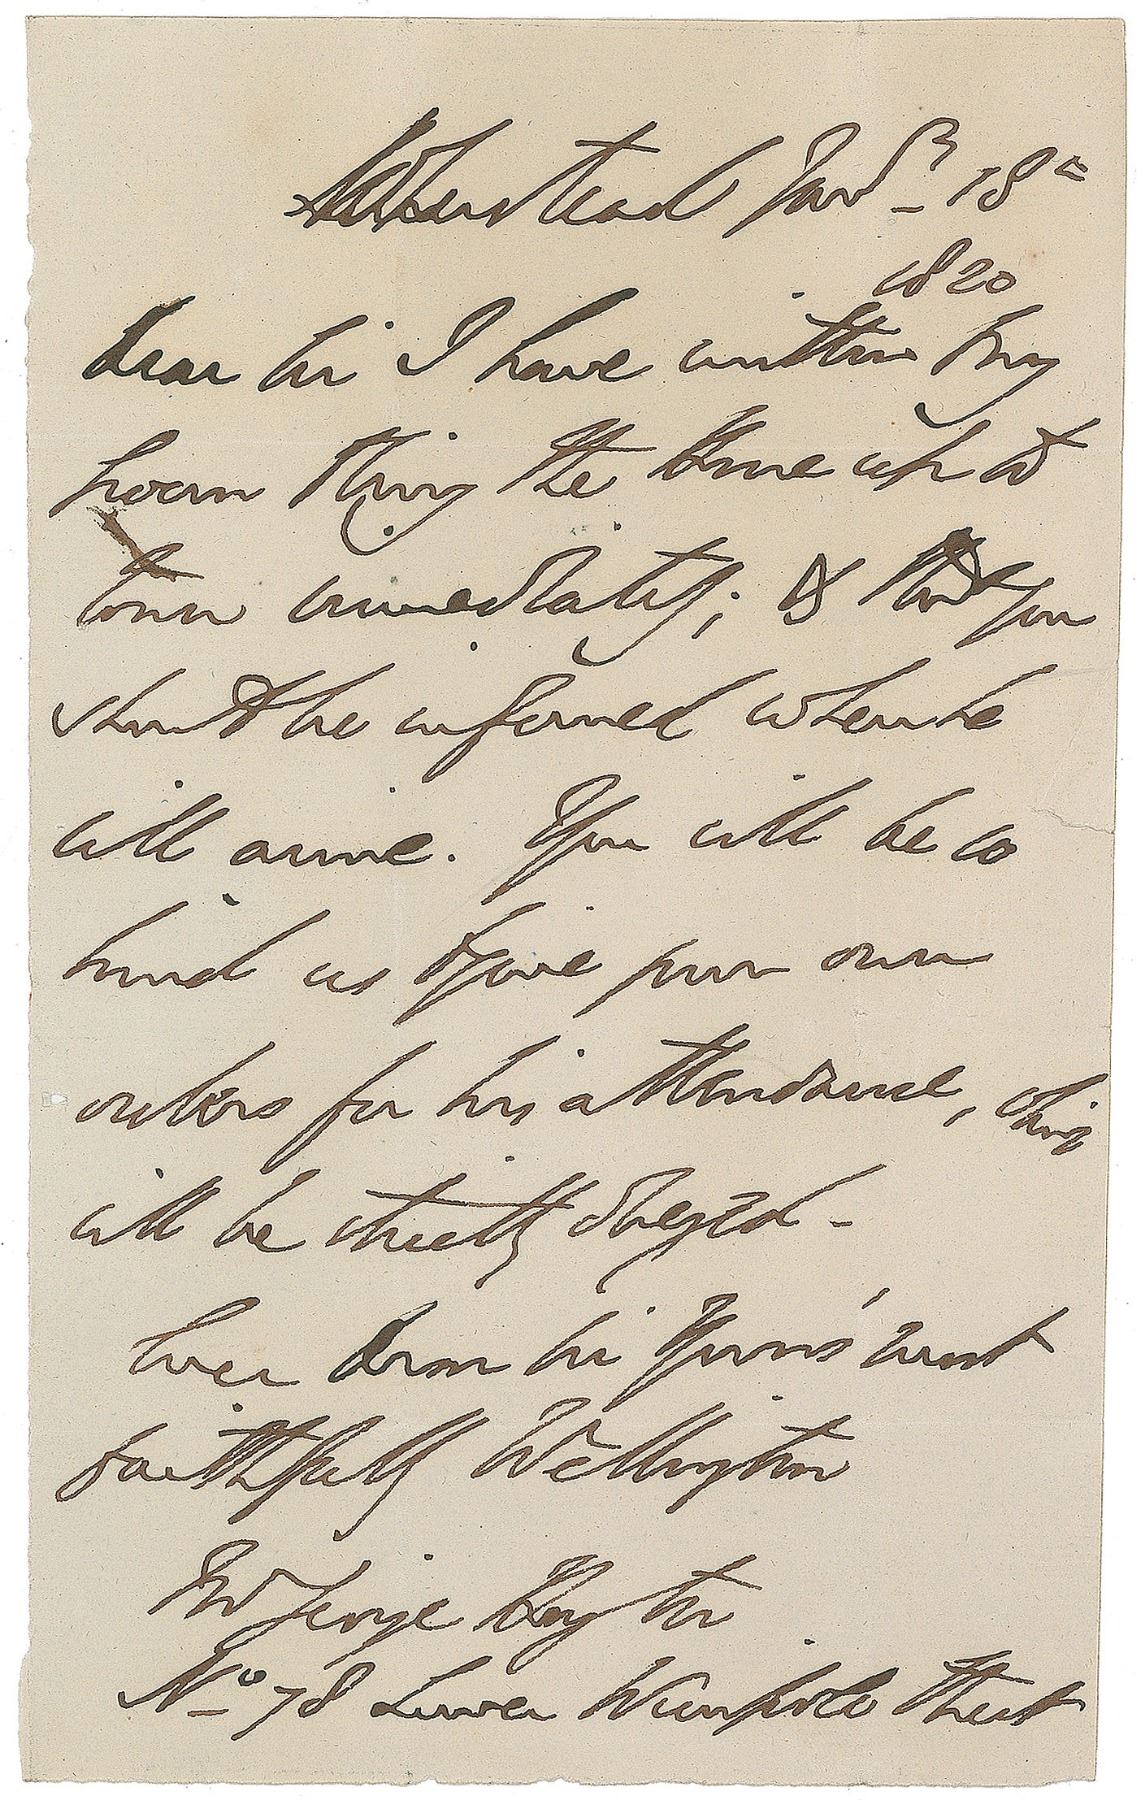 Jan^y 18^th
1820
Dear Sir I have written my
Groom to bring the Horse up to
Town immediately; & that you
should be informed when he
will arrive. You will be so
kind as to give your own
orders for his attendance, which
will be strictly obeyed -
Ever Dear Sir Yours' most
faithfully Wellington
George
No 78 Lower Wimpole Street